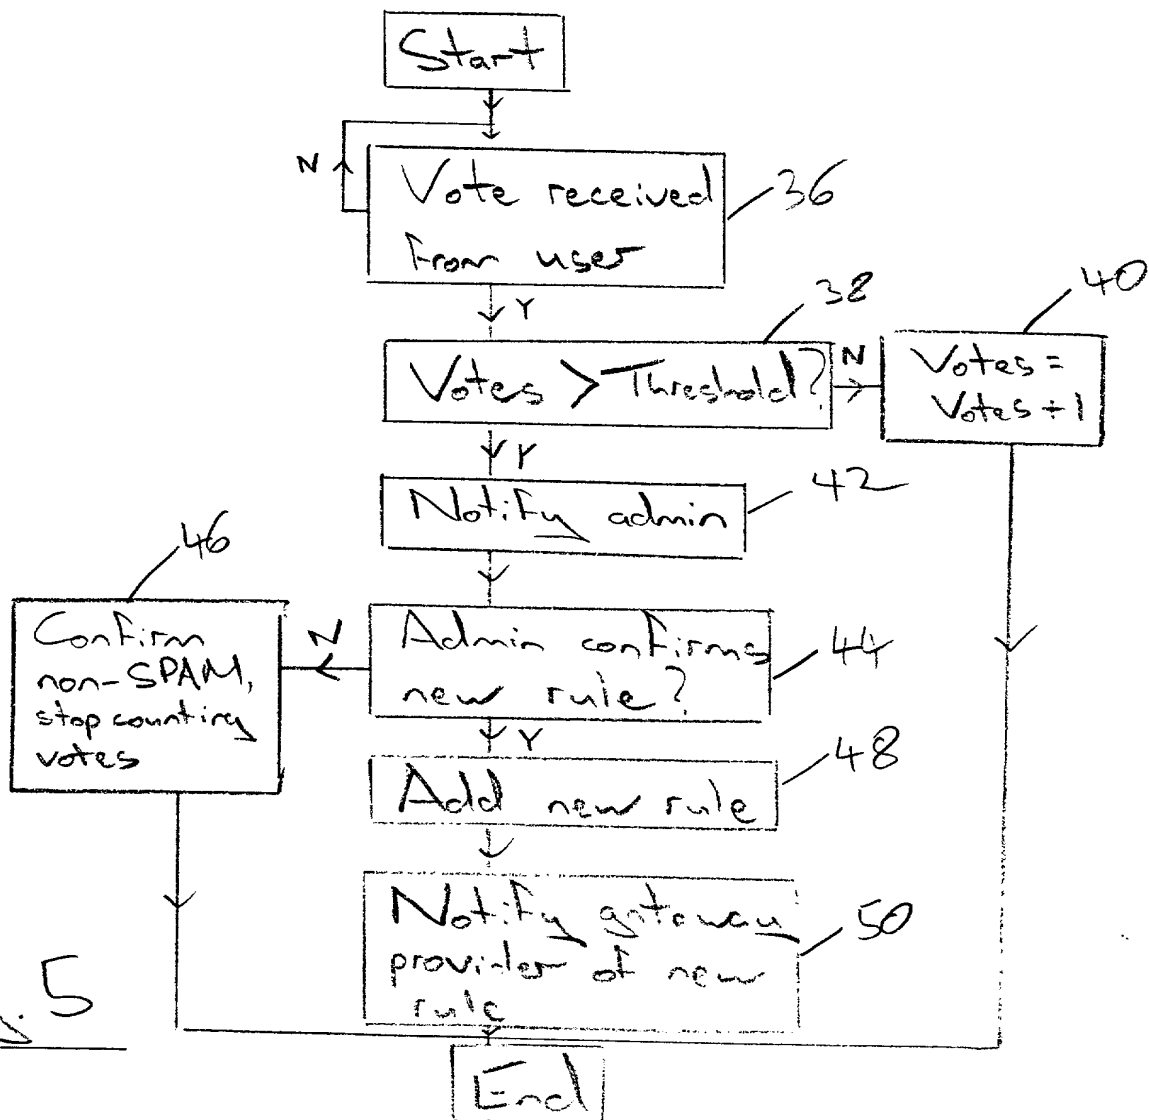 Start
N
Vote received
from user
36
Y
38
40
Votes > Threshold?
N
Votes =
Votes + 1
Y
42
Notify admin
46
Confirm
non-SPAM,
stop counting
votes
N
Admin confirms
new rule?
44
Y
48
Add new rule
Notify gateway
provider of new
rule
50
5
End